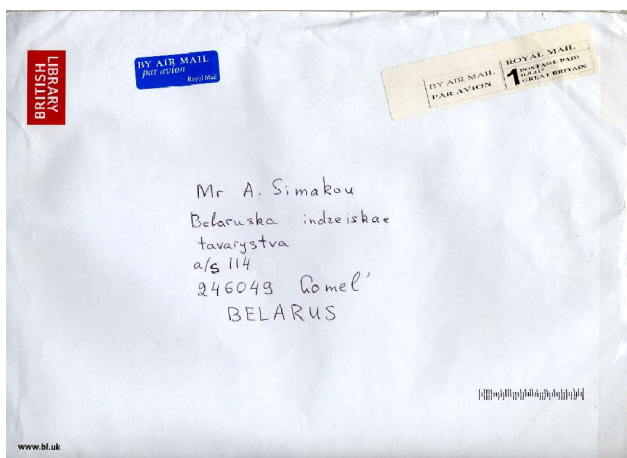 LIBRARY
BRITISH
BY AIR MAIL
par avion
Royal Mail
BY AIR MAIL
PAR AVION
ROYAL MAIL
1 POSTAGE PAID
GREAT BRITAIN
Mr A. Simakou
Belaruska indzeiskae
tavarystva
a/s 114
246049 Gomel'
BELARUS
www.bl.uk